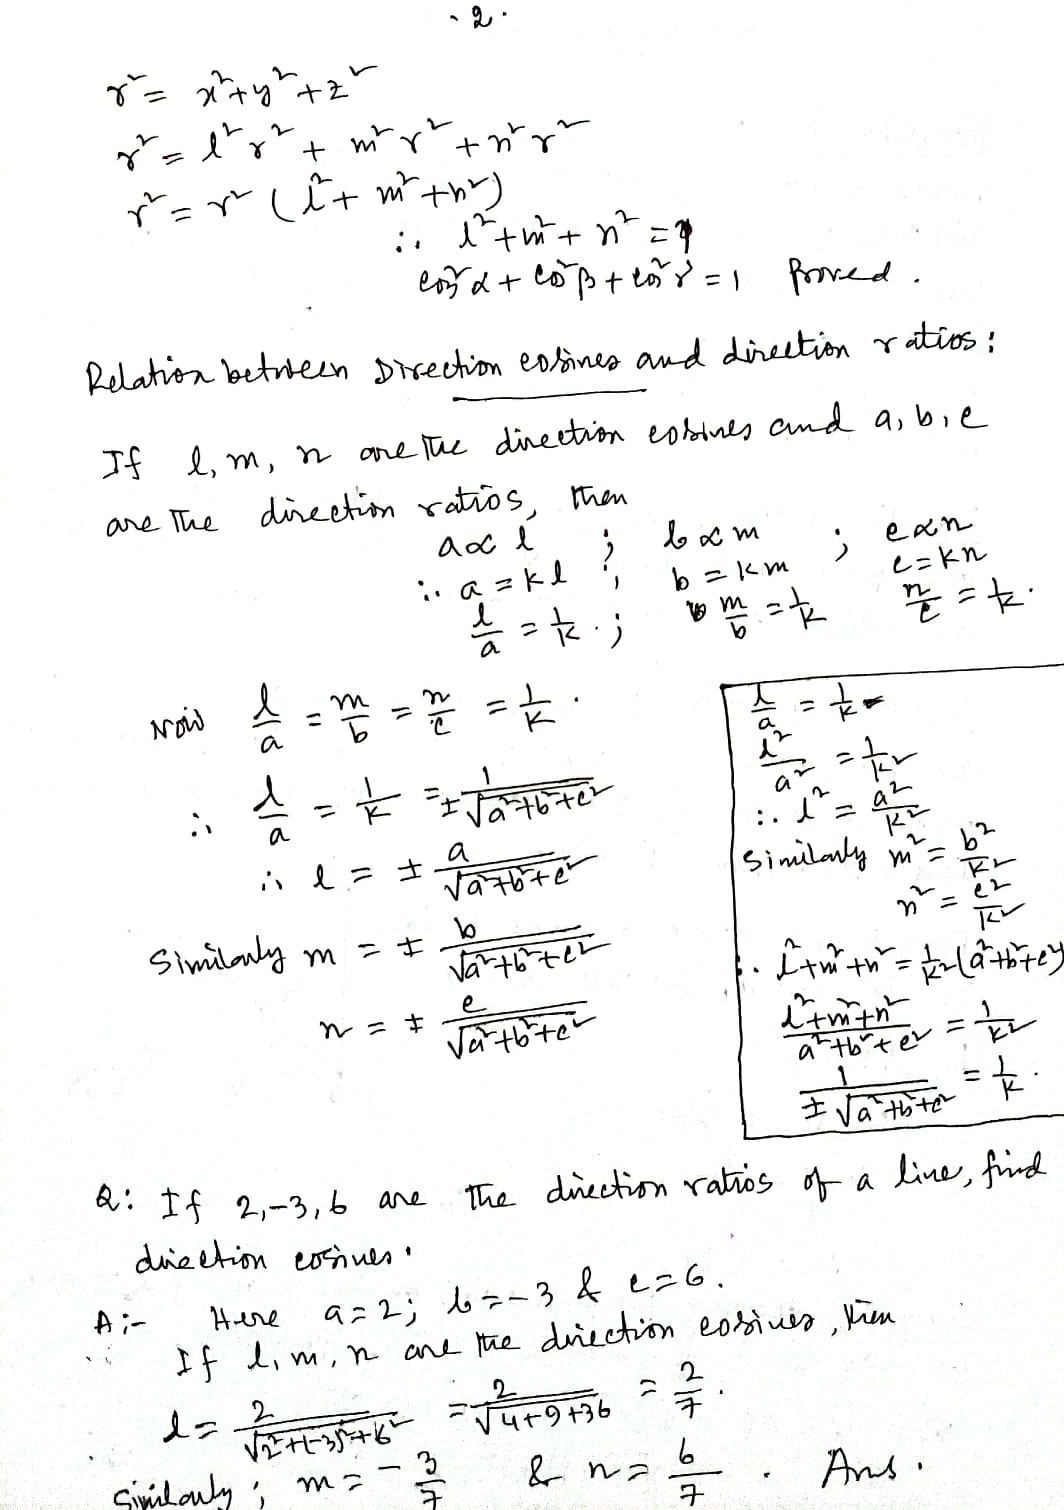 . 2 .
r² = x²+y²+z²
r² = l²r² + m²r² + n²r²
r² = r² (l²+ m²+n²)
∴ l²+m²+ n² = 1
cos²α + cos²β + cos²γ = 1 Proved .
Relation between Direction cosines and direction ratios :
If l, m, n are the direction cosines and a, b, c
are the direction ratios, then
a∝ l ; b ∝ m ; c∝n
∴ a = kl ; b = km c = kn
l/a = 1/k . ; m/b = 1/k n/c = 1/k .
Now l/a = m/b = n/c = 1/k .
∴ l/a = 1/k = 1/±√a²+b²+c²
∴ l = ± a/√a²+b²+c²
Similarly m = ± b/√a²+b²+c²
n = ± c/√a²+b²+c²
l/a = 1/k
l²/a² = 1/k²
∴ l² = a²/k²
Similarly m² = b²/k²
n² = c²/k²
∴ l²+m²+n² = 1/k²(a²+b²+c²)
l²+m²+n²/a²+b²+c² = 1/k²
1/±√a²+b²+c² = 1/k .
Q: If 2,-3,6 are the direction ratios of a line, find
direction cosines .
A:- Here a=2; b=-3 & c=6.
If l, m, n are the direction cosines, then
l = 2/√2²+(-3)²+6² = 2/√4+9+36 = 2/7 .
Similarly ; m = - 3/7 & n = 6/7 . Ans .